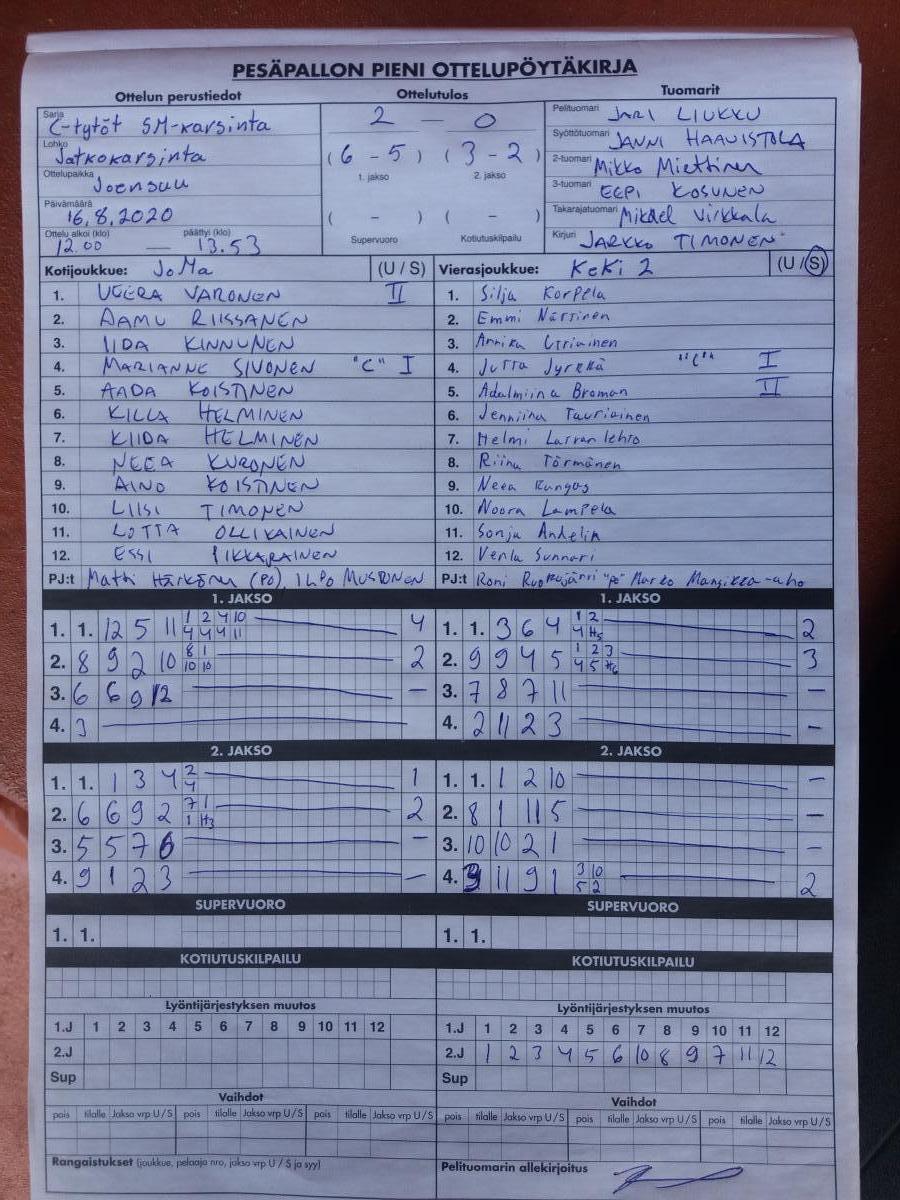 PESÄPALLON PIENI OTTELUPÖYTÄKIRJA
Ottelun perustiedot
Sarja C-tytöt SM-karsinta
Lohko Jatkokarsinta
Ottelupaikka Joensuu
Päivämäärä 16.8.2020
Ottelu alkoi (klo) 12.00 — päättyi (klo) 13.53
Ottelutulos
2 — 0
(6 - 5) (3 - 2)
1. jakso 2. jakso
( - ) ( - )
Supervuoro Kotiutuskilpailu
Tuomarit
Pelituomari JARI LIUKKU
Syöttötuomari JANNI HAAVISTOLA
2-tuomari Mikko Miettinen
3-tuomari EEPI KOSUNEN
Takarajatuomari Mikael Virkkala
Kirjuri JARKKO TIMONEN
Kotijoukkue: JoMa (U / S)
1. VEERA VARONEN II
2. AAMU RIISSANEN
3. IIDA KINNUNEN
4. MARIANNE SIVONEN "C" I
5. AADA KOISTINEN
6. KILLA HELMINEN
7. KIIDA HELMINEN
8. NEEA KURONEN
9. AINO KOISTINEN
10. LIISI TIMONEN
11. LOTTA OLLIKAINEN
12. ESSI PIKKARAINEN
PJ:t Matti Härkönen (PÖ), ILPO MUSTONEN
Vierasjoukkue: KeKi 2 (U / S)
1. Silja Korpela
2. Emmi Närsinen
3. Annika Utriainen
4. Jutta Jyrkkä "C" I
5. Adalmiina Broman II
6. Jenniina Tauriainen
7. Helmi Larvanlehto
8. Riina Törmänen
9. Neea Kungas
10. Noora Lampela
11. Sonja Andelin
12. Venla Sunnari
PJ:t Roni "pö" Marko Mansikka-aho
1. JAKSO
1. 1. 12 5 11 1 2 4 10 4
4 4 4 11
2. 8 9 2 10 8 1 2
10 10
3. 6 6 9 12 —
4. 3
1. JAKSO
1. 1. 3 6 4 1 2 2
4 H5
2. 9 9 4 5 1 2 3 3
4 5
3. 7 8 7 11 —
4. 2 11 2 3 —
2. JAKSO
1. 1. 1 3 4 2 1
4
2. 6 6 9 2 7 1 2
1 H3
3. 5 5 7 6 —
4. 9 1 2 3 —
2. JAKSO
1. 1. 1 2 10 —
2. 8 1 11 5 —
3. 10 10 2 1 —
4. 11 9 1 3 10 2
5 2
SUPERVUORO
1. 1.
SUPERVUORO
1. 1.
KOTIUTUSKILPAILU
KOTIUTUSKILPAILU
Lyöntijärjestyksen muutos
1.J 1 2 3 4 5 6 7 8 9 10 11 12
2.J
Sup
Lyöntijärjestyksen muutos
1.J 1 2 3 4 5 6 7 8 9 10 11 12
2.J 1 2 3 4 5 6 10 8 9 7 11 12
Sup
Vaihdot
pois tilalle Jakso vrp U / S pois tilalle Jakso vrp U / S pois tilalle Jakso vrp U / S
Vaihdot
pois tilalle Jakso vrp U / S pois tilalle Jakso vrp U / S pois tilalle Jakso vrp U / S
Rangaistukset (joukkue, pelaaja nro, jakso vrp U / S ja syy)
Pelituomarin allekirjoitus